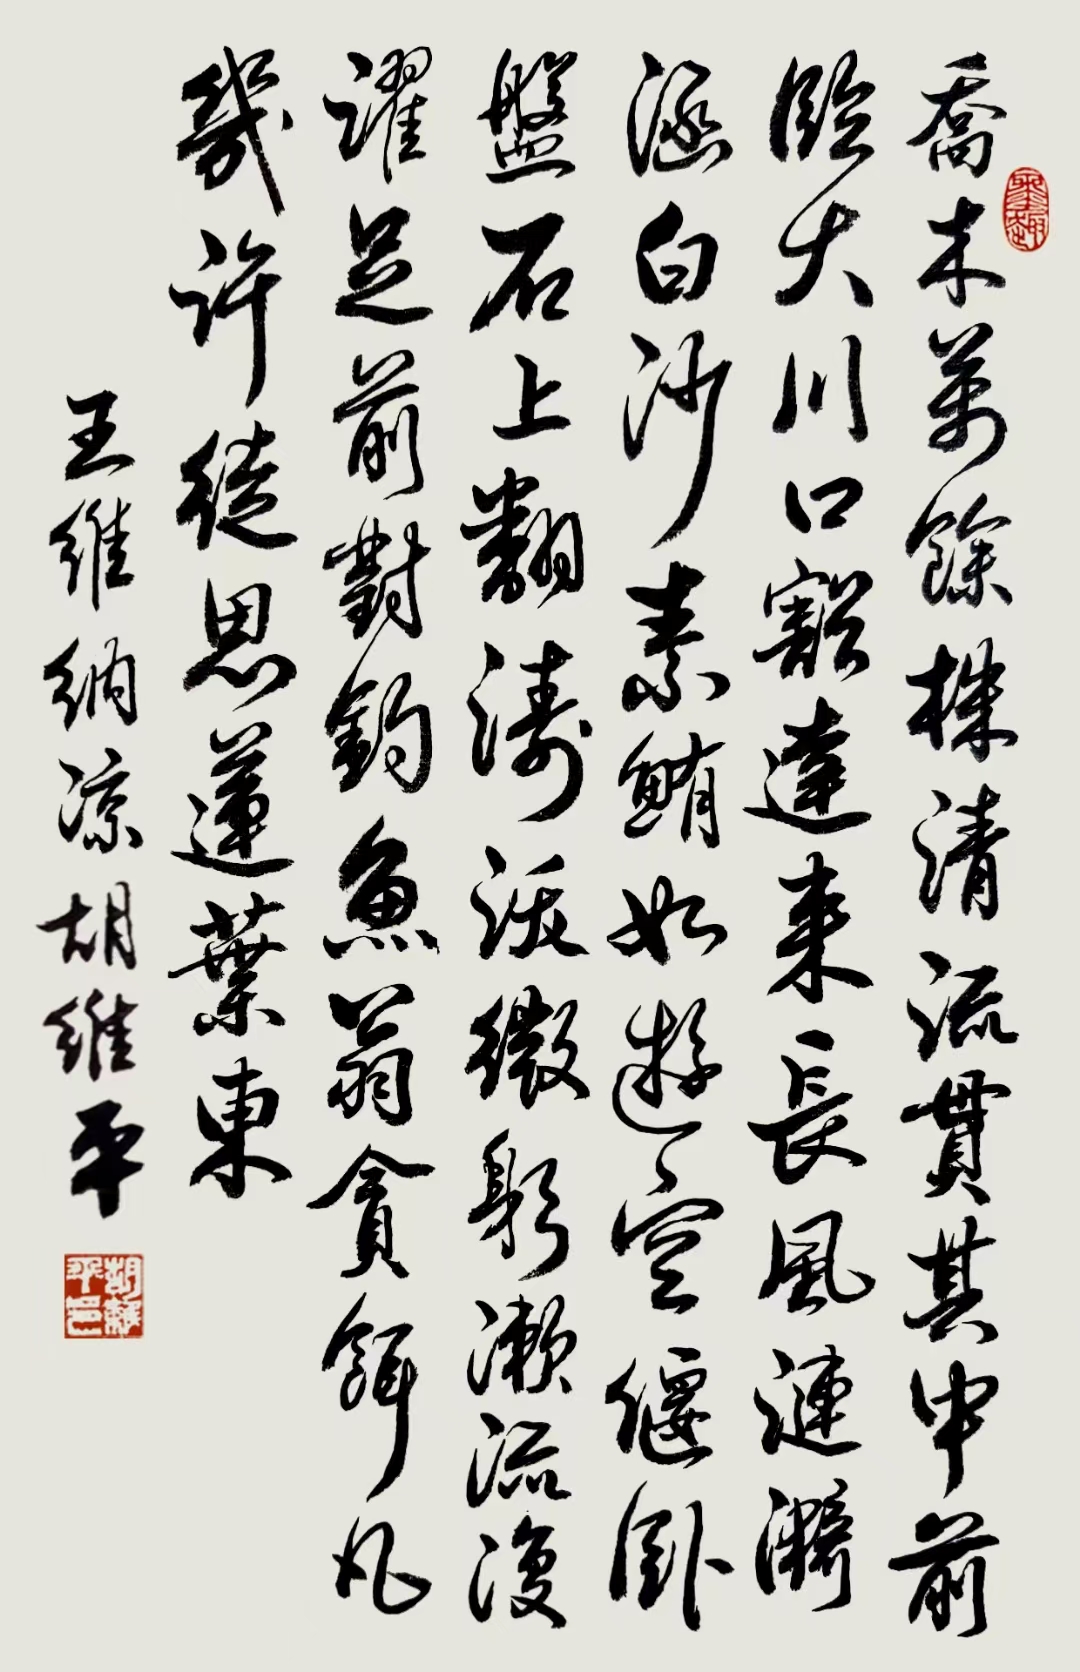 喬木萬餘株清流貫其中前
臨大川口豁達来長風漣漪
涵白沙素鮪如遊空偃卧
盤石上翻濤沃微躬漱流復
濯足前對釣魚翁貪餌凡
幾許徒思蓮葉東
王維納凉胡維平
胡維平印